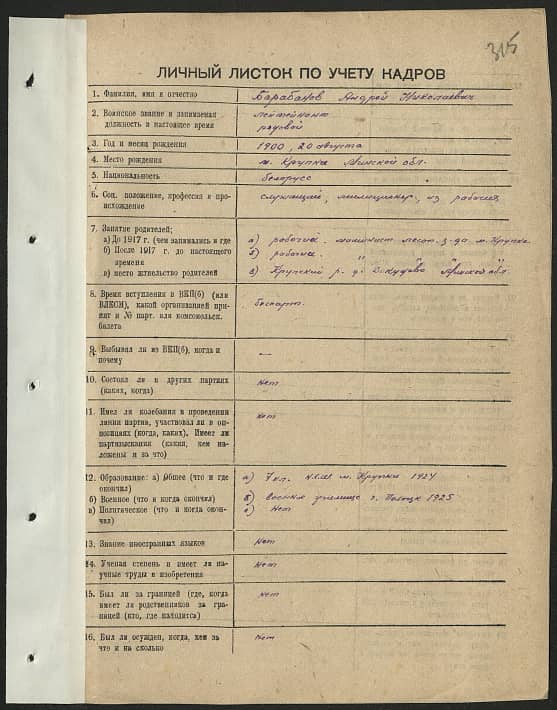 315
ЛИЧНЫЙ ЛИСТОК ПО УЧЕТУ КАДРОВ
1. Фамилия, имя и отчество Барабанов Андрей Николаевич
2. Воинское звание и занимаемая лейтенант
должность в настоящее время рядовой
3. Год и месяц рождения 1900, 20 августа
4. Место рождения м. Крупка Минской обл.
5. Национальность белорусс
6. Соц. положение, профессия и про- служащий, милиционер, из рабочих
исхождение
7. Занятие родителей;
а) До 1917 г. (чем занимались и где а) рабочий. машинист лесоп. з-да м. Крупка
б) После 1917 г. до настоящего б) рабочий.
времени
в) место жительство родителей в) Крупский р. д. Минской обл.
8. Время вступления в ВКП(б) (или
ВЛКСМ), какой организацией при- беспарт.
нят и № парт. или комсомольск.
билета
9. Выбывал ли из ВКП(б), когда и —
почему
10. Состоял ли в других партиях нет
(каких, когда)
11. Имел ли колебания в проведении нет
линии партии, участвовал ли в оп-
позициях (когда, каких), Имеет ли
партвзыскания (какия, кем на-
ложены и за что)
12. Образование: а) Общее (что и где а) 7 кл. м. Крупки 1924
окончил)
б) Военное (что и когда окончил) б) военная училище г. Полоцк 1925
в) Политическое (что и когда окон- в) нет
чил)
13. Знание иностранных языков нет
14. Ученая степень и имеет ли на- нет
учные труды и изобретения
15. Был ли за границей (где, когда нет
имеет ли родственников за гра-
ницей (кто, где находится)
16. Был ли осужден, когда, кем за нет
что и на сколько